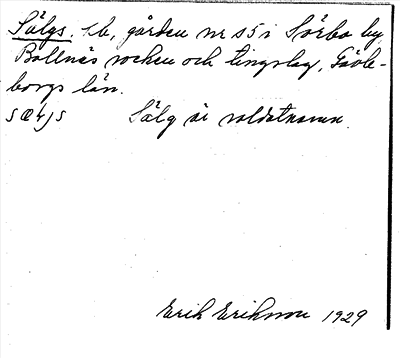 Sälgs. sb, gården nr 55 i Sörbo by,
Bollnäs socken och tingslag, Gävle-
borgs län.
Sälg är soldatnamn.
Erik Eriksson 1929